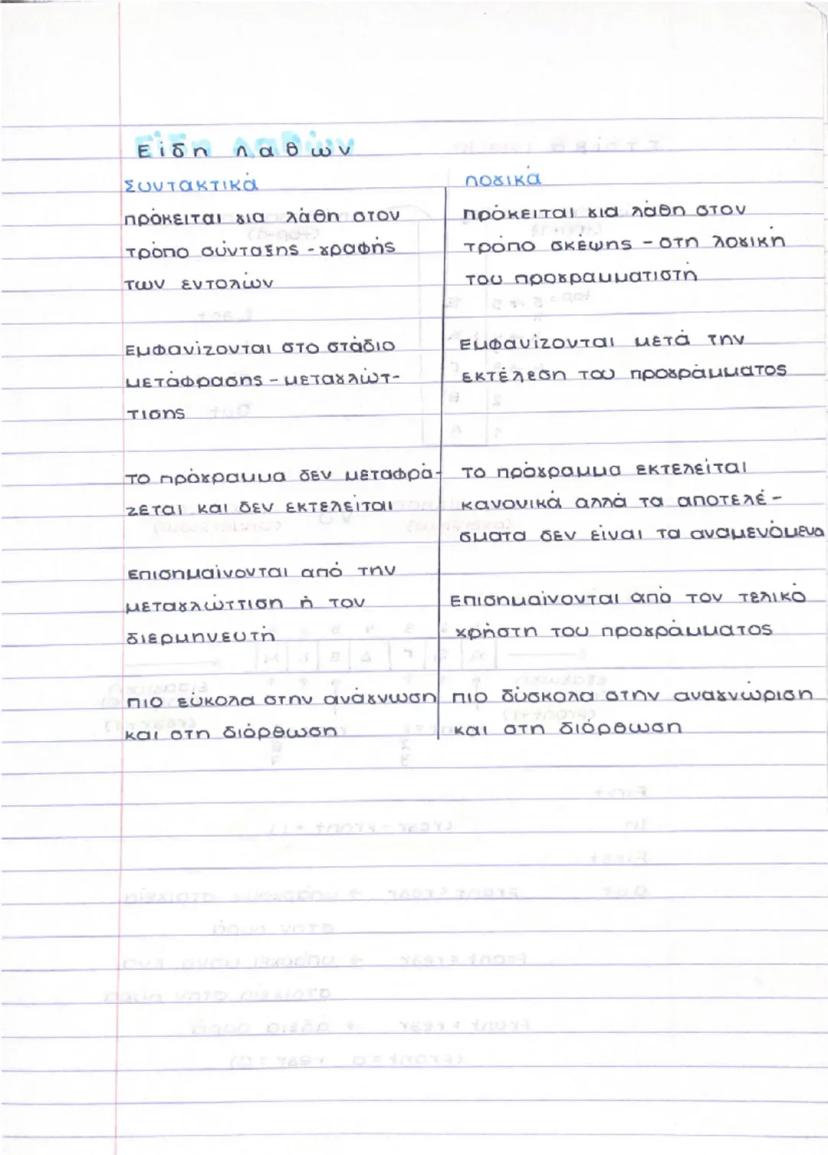 Είδη λαθών
Συντακτικά
πρόκειται για λάθη στον
τρόπο σύνταξης - γραφής
των εντολών
Εμφανίζονται στο στάδιο
μετάφρασης - μεταγλώτ-
τισης
Το πρόγραμμα δεν μεταφρά-
ζεται και δεν εκτελείται
Επισημαίνονται από την
μεταγλώττιση ή τον
διερμηνευτή
πιο εύκολα στην ανάγνωση
και στη διόρθωση
Λογικά
πρόκειται για λάθη στον
τρόπο σκέψης - στη λογική
του προγραμματιστή
Εμφανίζονται μετά την
εκτέλεση του προγράμματος
Το πρόγραμμα εκτελείται
κανονικά αλλά τα αποτελέ-
σματα δεν είναι τα αναμενόμενα
Επισημαίνονται από τον τελικό
χρήστη του προγράμματος
πιο δύσκολα στην αναγνώριση
και στη διόρθωση